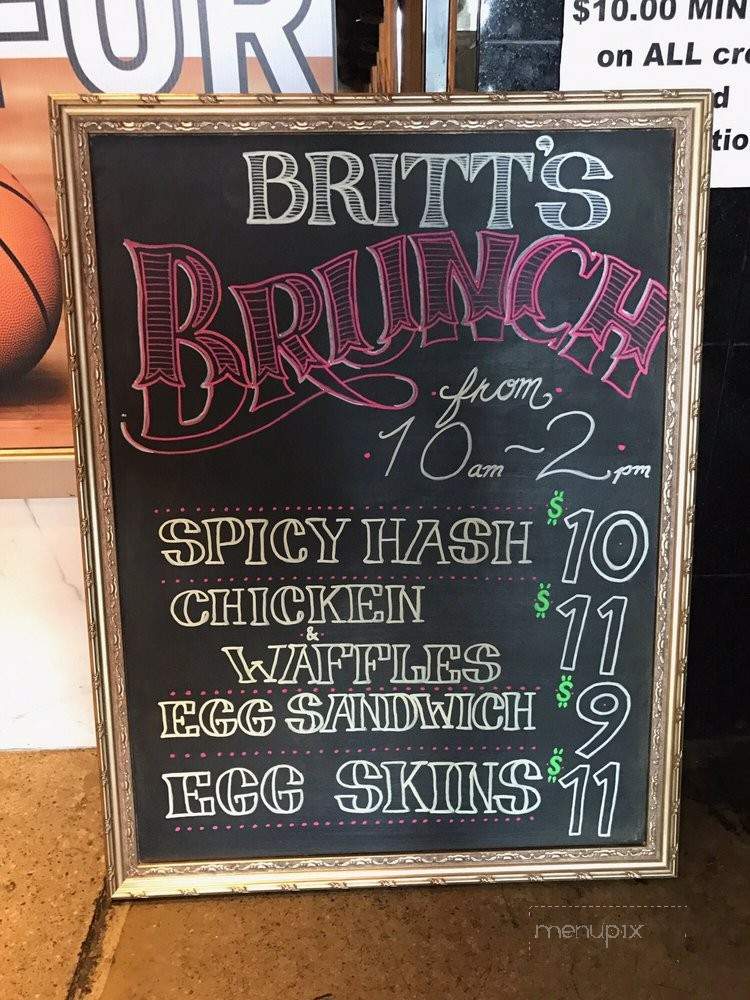 FOR
$10.00 MIN
on ALL cre
d
tio
BRITT'S
BRUNCH
from
10am~2pm
SPICY HASH $10
CHICKEN
&
WAFFLES $11
EGG SANDWICH $9
EGG SKINS $11
menupix